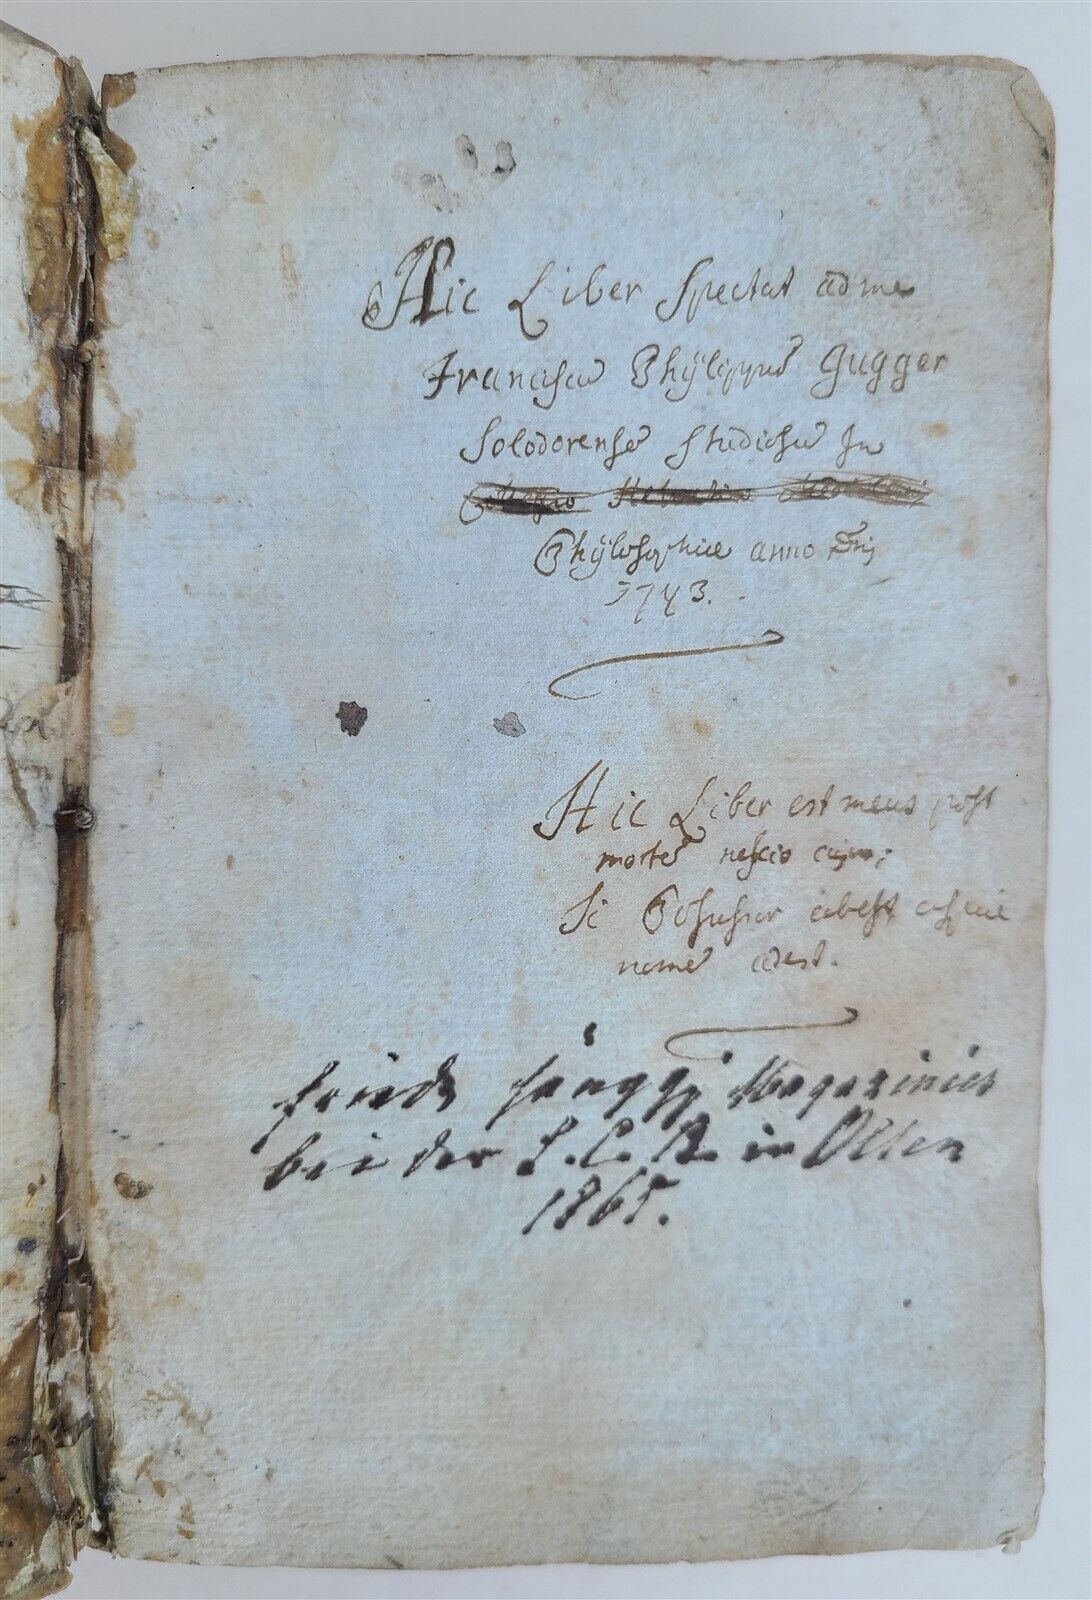 Hic Liber spectat ad me
Franciscũ Phÿlippũ Gugger
Solodorensẽ studiosũ In
Phÿlosophiae anno Dñj
1743.
Hic Liber est meus post
mortẽ nescio cujus;
Si Possessor abest
nomẽ adest.
Friedr Hänggj Magazinier
bei der S. C. B. in Olten
1865.